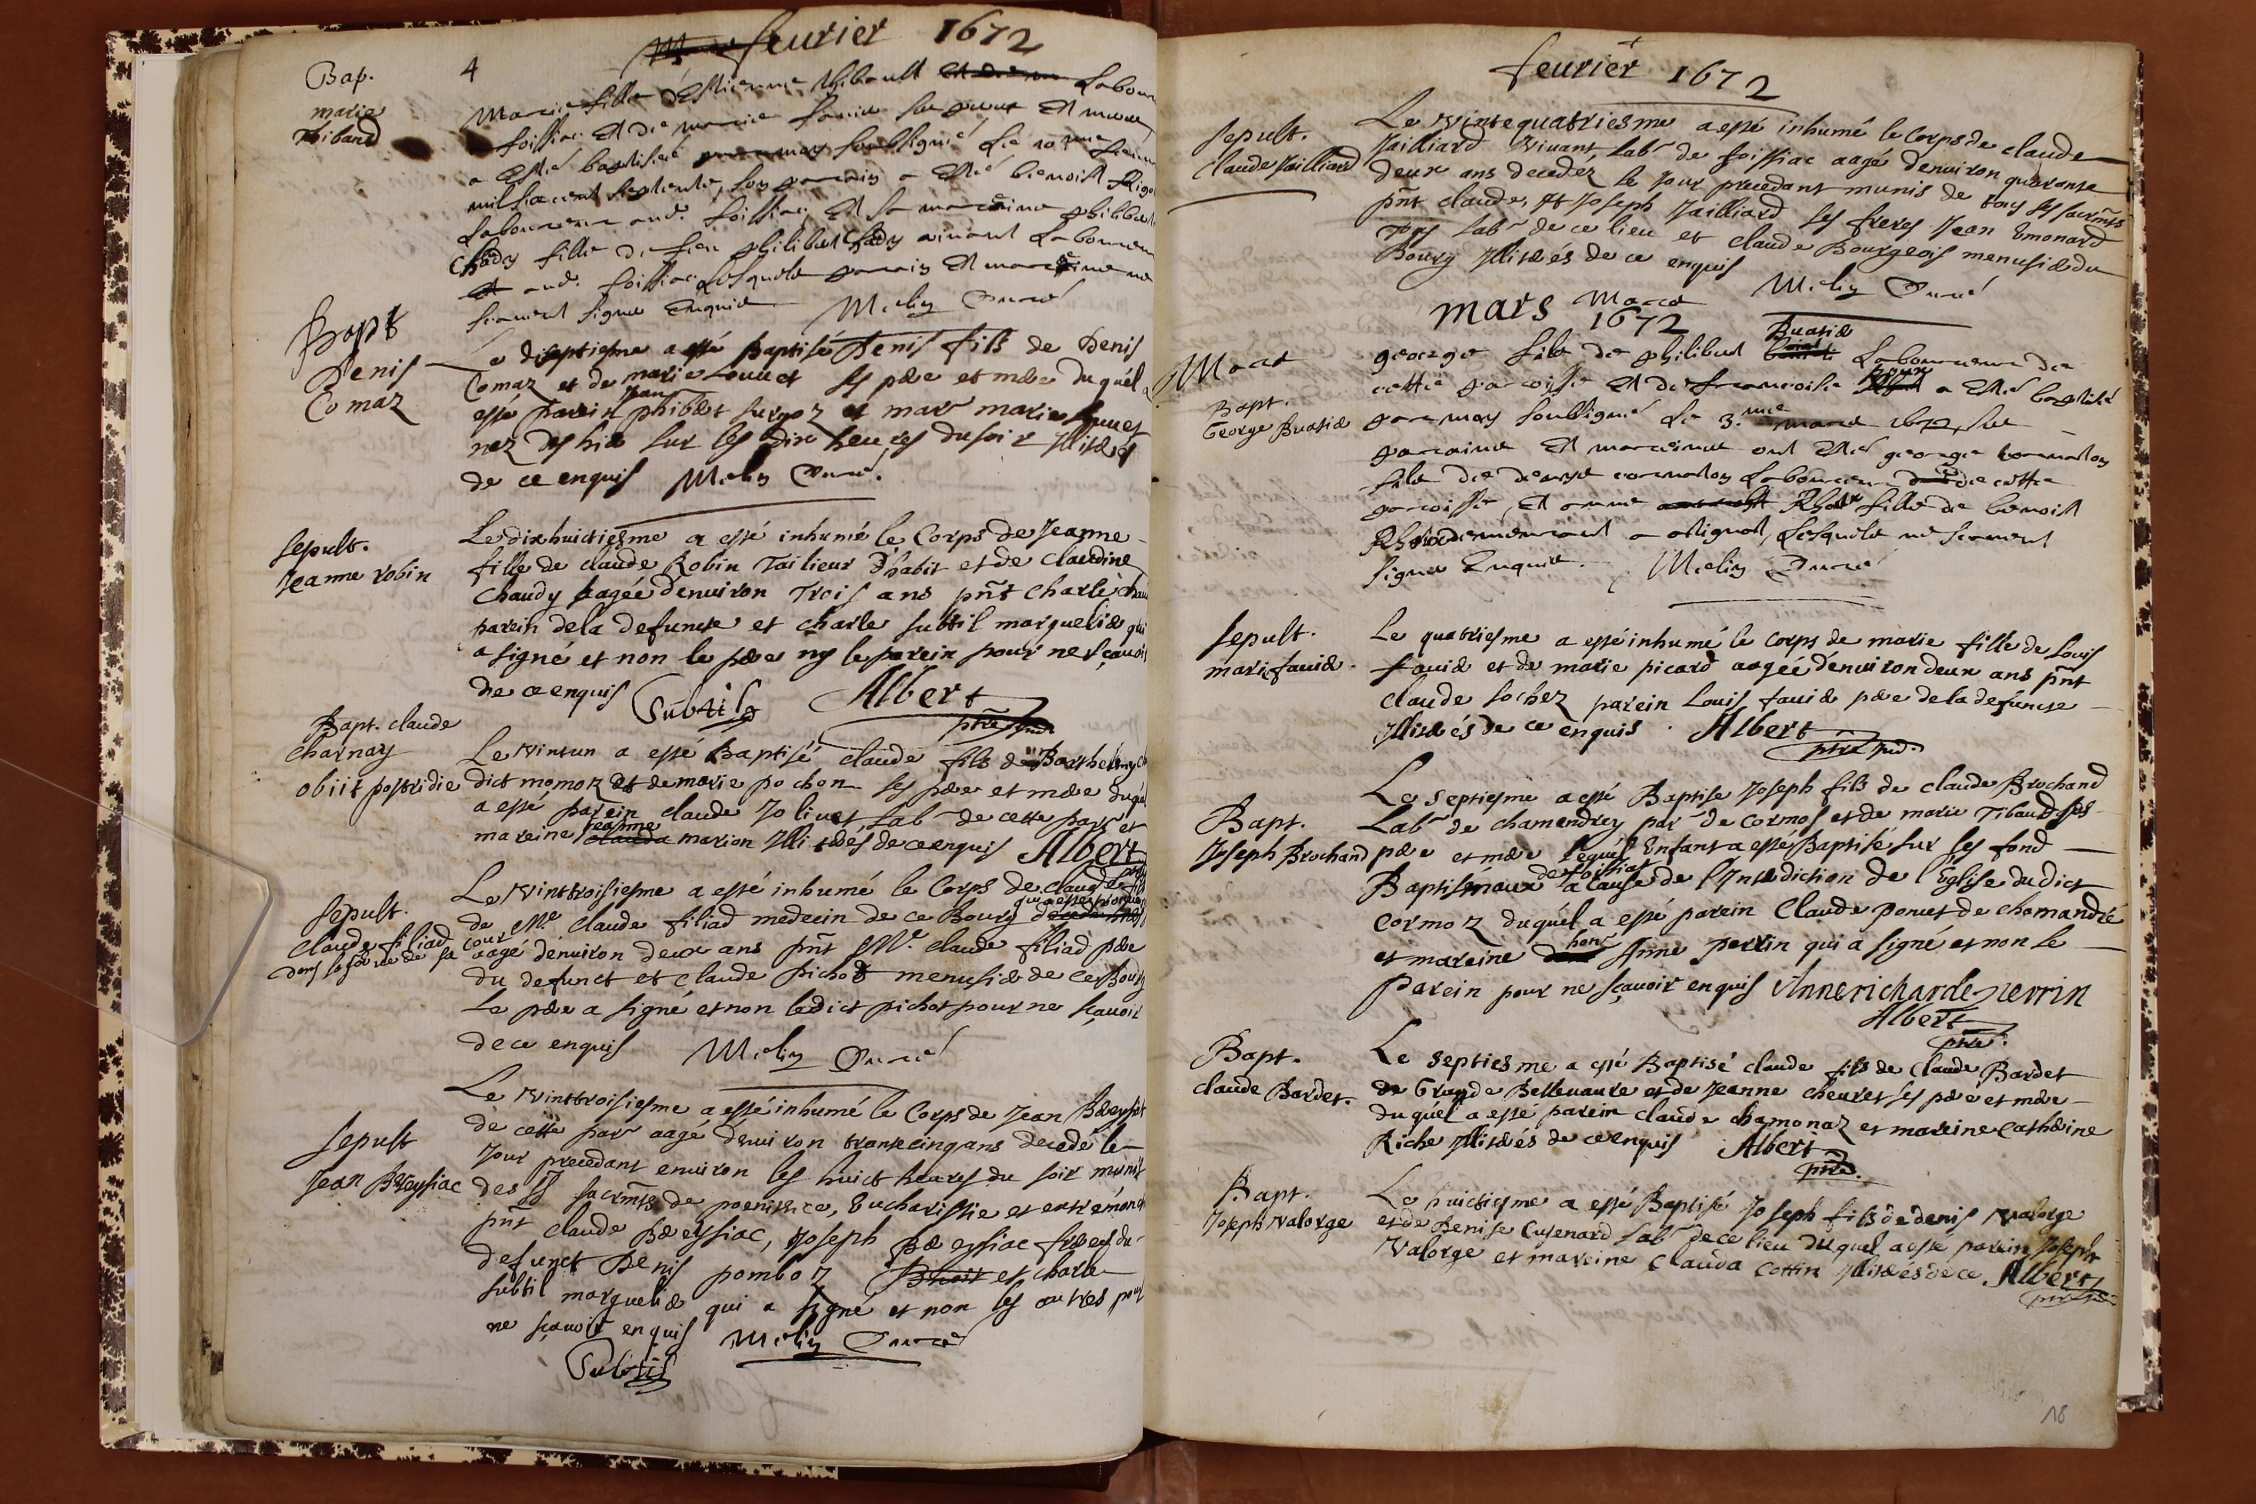 feurier 1672
Bap. 4
marie
Thibaud
Marie fille d'Estienne Thibault Labour
foissiac Et de marie ses pere Et mere
a Esté baptiseé par moy soubsigné Le 10me
mil six cent septente, son parrain a Esté benoist
Laboureur aud. foissiac Et sa marraine philiberte
Chady fille de feu philibert Chady viuant Laboureur
aud. foissiac Lesquels parrain Et marraine ne
scauent signer Enquis Melin Curé
Bapt
Denis
Comaz
Le diseptiesme a esté Baptisé Denis fils de Denis
Comaz et de marie Louuet ses pere et mere duquel a
esté parein Jean philibert et mar marie Louuet
nez des hier sur les dix heures du soir Illiterés
de ce enquis Melin Curé.
sepult.
Jeanne robin
Le dixhuictiesme a esté inhumé le Corps de Jeanne
fille de claude Robin Tailieur d'habit et de claudine
Chaudy aagée d'enuiron Trois ans pñt charle
parein dela defuncte et charle subtil marguelier qui
a signé et non le pere ny le parein pour ne sçauoir
de ce enquis Subtil Albert
ptre
Bapt. claude
charnay
obiit postridie
Le vintun a este Baptisé claude fils de Barthelemy
dict momoz et de marie pochon ses pere et mere duquel
a esté parein claude Joliuet, Labr de cette parr et
mareine Jeanne clauda marion Illiterés de ce enquis Albert
sepult.
claude filiad
Le vinttroisiesme a esté inhumé le Corps de claude fils
de Mre. claude filiad medecin de ce Bourg
aagé d'enuiron deux ans pñt Mre. claude filiad pere
du defunct et claude pichot menusier de ce Bourg
Le pere a signé et non ledict pichot pour ne sçauoir
de ce enquis Melin Curé
sepult
Jean Breyssiac
Le vinttroisiesme a esté inhumé le Corps de Jean Breyssiac
de cette parr aagé d'enuiron trante cinq ans decedé le
Jour precedant enuiron les huict heures du soir munit
des SS sacrmts de poenitence, Eucharistie et extremonction
pñt claude Breyssiac, Joseph Breyssiac freres du
defunct Denis pomboz Benoit et charle
subtil marguelier qui a signé et non les autres pour
ne sçauoir enquis Melin Curé
Subtil
feurier 1672
sepult.
claude Jailliard
Le vintequatriesme a esté inhumé le Corps de claude
Jailliard viuant Labr de foissiac aagé denuiron quarante
deux ans decedéz le Jour precedant munis de tous ses sacrmts
pñt claude, et Joseph Jailliard ses freres Jean Emonard
Tous Labr de ce lieu et claude Bourgeois menusier du
Bourg Illiterés de ce enquis Melin Curé
mars Mars
1672
Mars
Bapt.
George Buatier
george fils de philibert Buatier Laboureur de
cette paroisse Et de francoise a Esté baptisé
par moy soubsigné Le 3.me mars 1672, ses
parraine Et marraine ont Esté george cormaton
fils de denys cormaton Laboureur de cette
paroisse, Et anne fille de benoist
demeurant a, Lesquels ne scauent
signer Enquis. Melin Curé
sepult.
marie fauier.
Le quatriesme a esté inhumé le Corps de marie fille de Louis
fauier et de marie picard aagée d'enuiron deux ans pñt
claude sochez parein Louis fauier pere dela defuncte
Illiterés de ce enquis. Albert
ptre
Bapt.
Joseph Brochand
Le septiesme a esté Baptise Joseph fils de claude Brochand
Labr de chamendrey parr de cormos et de marie Tibaud ses
pere et mere lequel Enfant a esté Baptisé sur les fond
Baptismaux de foissiat a cause de l'Interdiction de l'Eglise du dict
cormoz duquel a esté parein Claude ponset de chamandré
et mareine honr Anne perrin qui a signé et non le
parein pour ne sçauoir enquis Anne richarde perrin
Albert
ptre.
Bapt.
claude Bardet.
Le septiesme a esté Baptisé claude fils de claude Bardet
de Grande Belleuaure et de Jeanne cheuret ses pere et mere
duquel a esté parein claude chamonaz et mareine catherine
Riche Illiterés de ce enquis Albert
ptre.
Bapt.
Joseph valorge
Le huictiesme a esté Baptisé Joseph fils de denis valorge
et de Denise Cusenard Labr de ce lieu duquel a esté parein Joseph
valorge et mareine Clauda cottin Illiterés de ce Albert
18